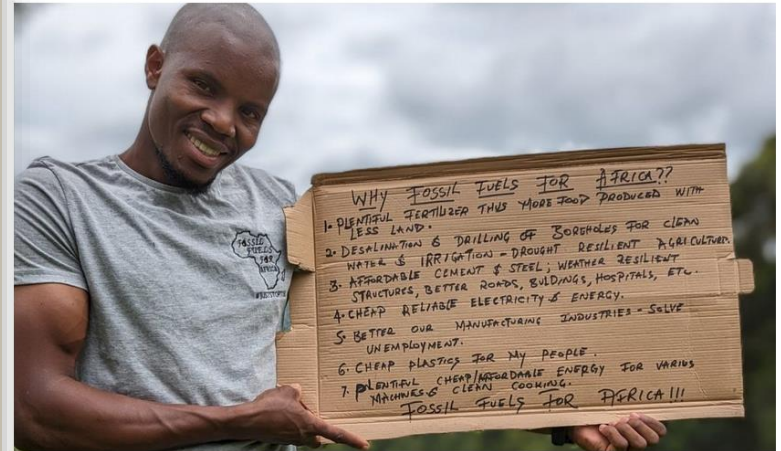 FOSSIL
FUELS
FOR
AFRICA
WHY FOSSIL FUELS FOR AFRICA??
1. PLENTIFUL FERTILIZER THUS MORE FOOD PRODUCED WITH
LESS LAND.
2. DESALINATION & DRILLING OF BOREHOLES FOR CLEAN
WATER & IRRIGATION - DROUGHT RESILIENT AGRICULTURE.
3. AFFORDABLE CEMENT & STEEL; WEATHER RESILIENT
STRUCTURES, BETTER ROADS, BULDINGS, HOSPITALS, ETC.
4. CHEAP RELIABLE ELECTRICITY & ENERGY.
5. BETTER OUR MANUFACTURING INDUSTRIES - SOLVE
UNEMPLOYMENT.
6. CHEAP PLASTICS FOR MY PEOPLE.
7. PLENTIFUL CHEAP/AFFORDABLE ENERGY FOR VARIOUS
MACHINES & CLEAN COOKING.
FOSSIL FUELS FOR AFRICA!!!